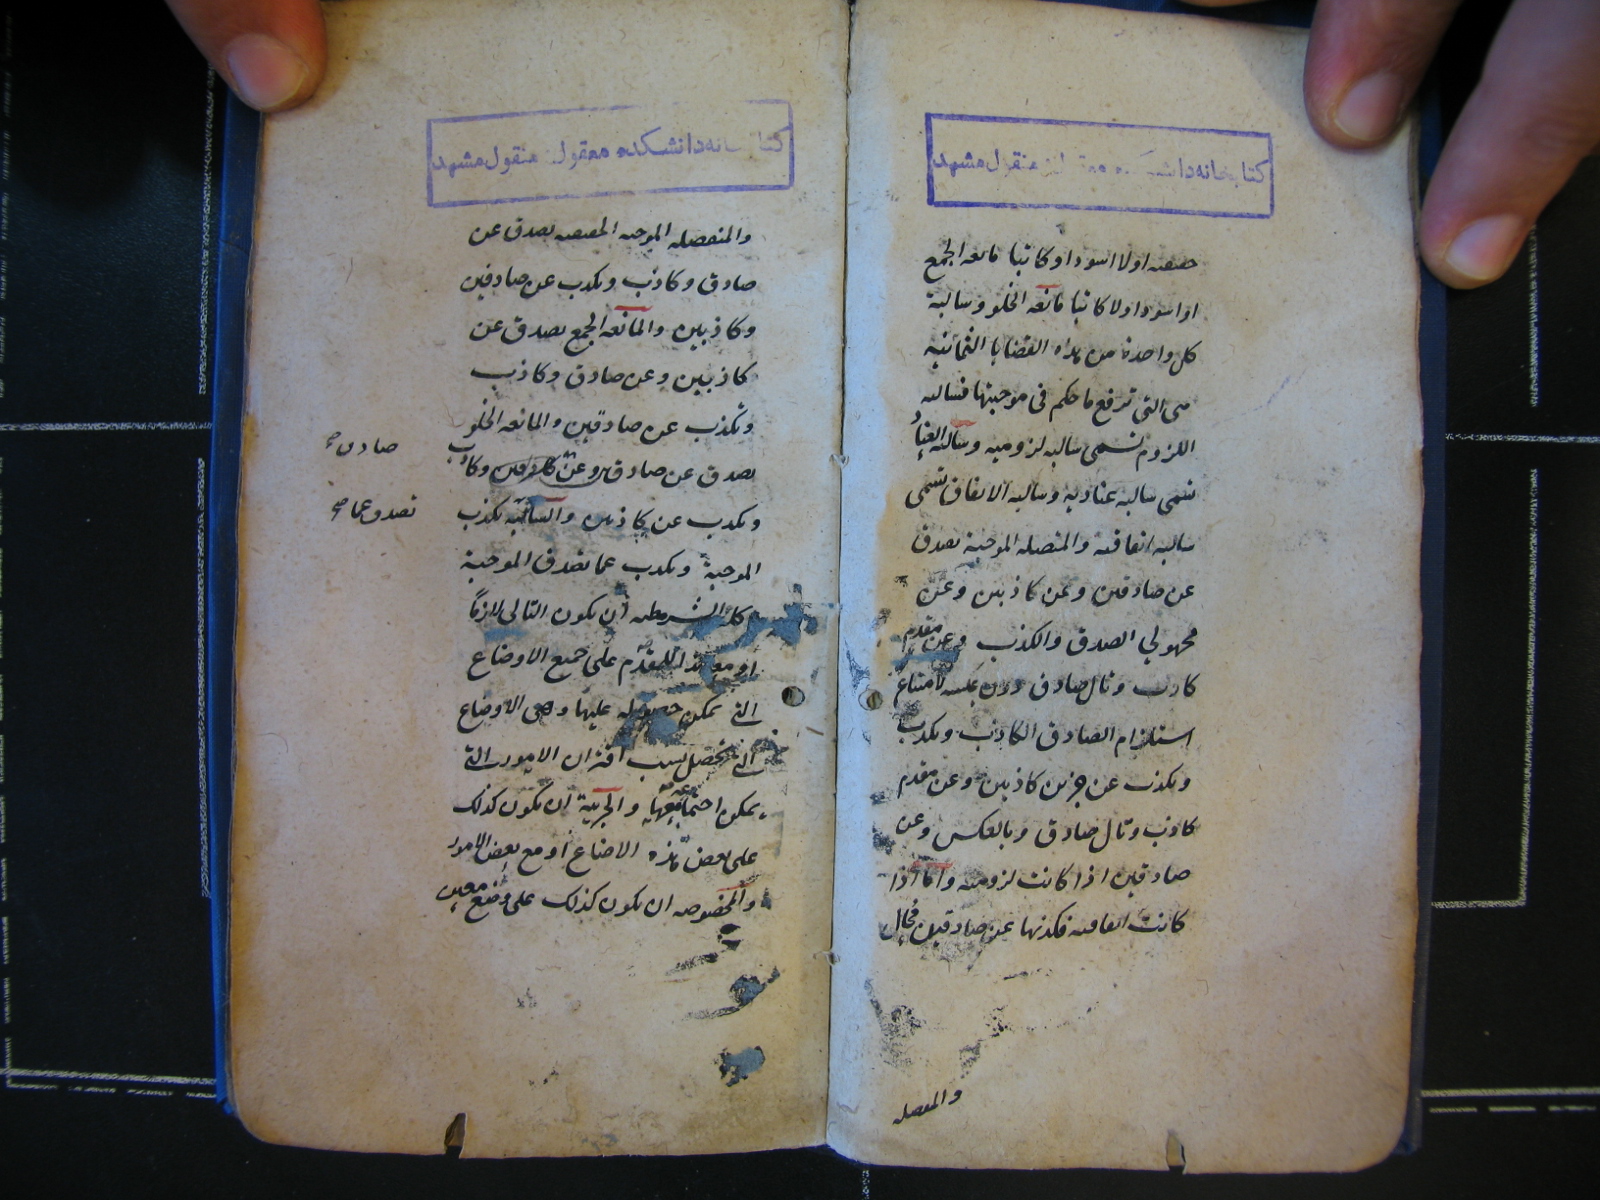 كتابخانه دانشكده معقول و منقول مشهد
حقيقية او لا اسود او كاتبا مانعة الجمع
او اسود او لا كاتبا مانعة الخلو وسالبة
كل واحدة من هذه القضايا الثمانية
هى التى ترفع ما حكم فى موجبتها فسالبة
اللزوم تسمى سالبة لزومية وسالبة العناد
تسمى سالبة عنادية وسالبة الاتفاق تسمى
سالبة اتفاقية والمتصلة الموجبة تصدق
عن صادقين وعن كاذبين وعن
مجهولي الصدق والكذب وعن مقدم
كاذب وتال صادق دون عكسه لامتناع
استلزام الصادق الكاذب وتكذب
وتكذب عن جزئين كاذبين وعن مقدم
كاذب وتال صادق وبالعكس وعن
صادقين اذا كانت لزومية واما اذا
كانت اتفاقية فكذبها عن صادقين محال
والمنفصلة
كتابخانه دانشكده معقول و منقول مشهد
والمنفصلة الموجبة الحقيقية تصدق عن
صادق وكاذب وتكذب عن صادقين
وكاذبين والمانعة الجمع تصدق عن
كاذبين وعن صادق وكاذب
وتكذب عن صادقين والمانعة الخلو
تصدق عن صادقين وعن وكاذب
صادق
وتكذب عن كاذبين والسالبة تكذب
تصدق عما
الموجبة وتكذب عما تصدق الموجبة
كلية الشرطية أن يكون التالى لازما
او للمقدم على جميع الاوضاع
التى يمكن حصوله عليها وهى الاوضاع
التى تحصل بسبب اقتران الامور التى
يمكن اجتماعها والجزئية ان تكون كذلك
على بعض هذه الاضاع أو مع بعض الامور
والمخصوصة ان يكون كذلك على وضع معين